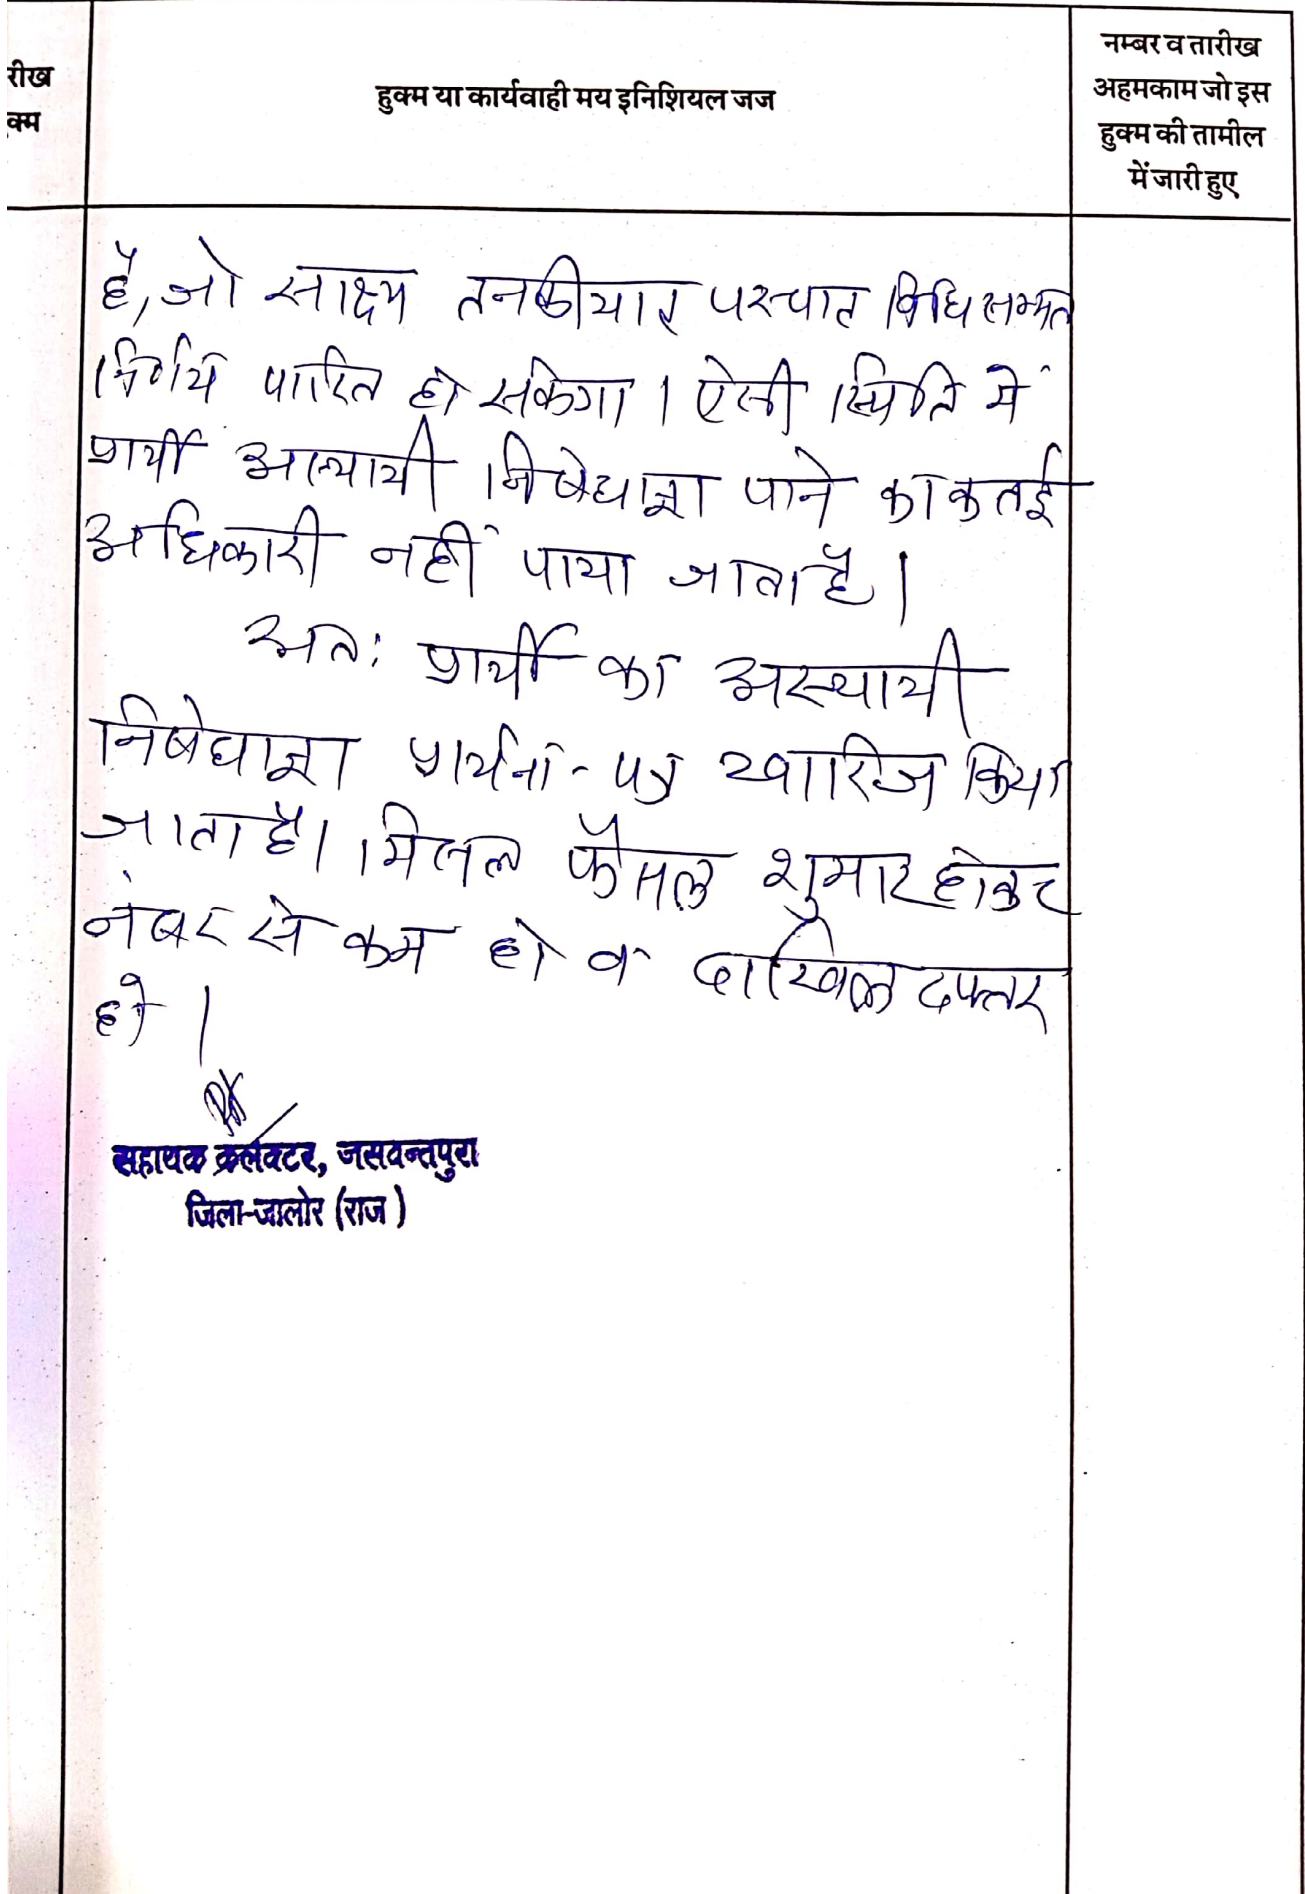 रीख
क्म
हुक्म या कार्यवाही मय इनिशियल जज
नम्बर व तारीख
अहमकाम जो इस
हुक्म की तामील
में जारी हुए
है, जो साक्ष्य तनकीयात पश्चात विधि सम्मत
निर्णय पारित हो सकेगा। ऐसी स्थिति में
प्रार्थी अस्थायी निषेधाज्ञा पाने का कतई
अधिकारी नहीं पाया जाता है।
अतः प्रार्थी का अस्थायी
निषेधाज्ञा प्रार्थना-पत्र खारिज किया
जाता है। मिसल फैसल शुमार होकर
नंबर से कम हो व दाखिल दफ्तर
हो।
सहायक कलेक्टर, जसवन्तपुरा
जिला-जालोर (राज)